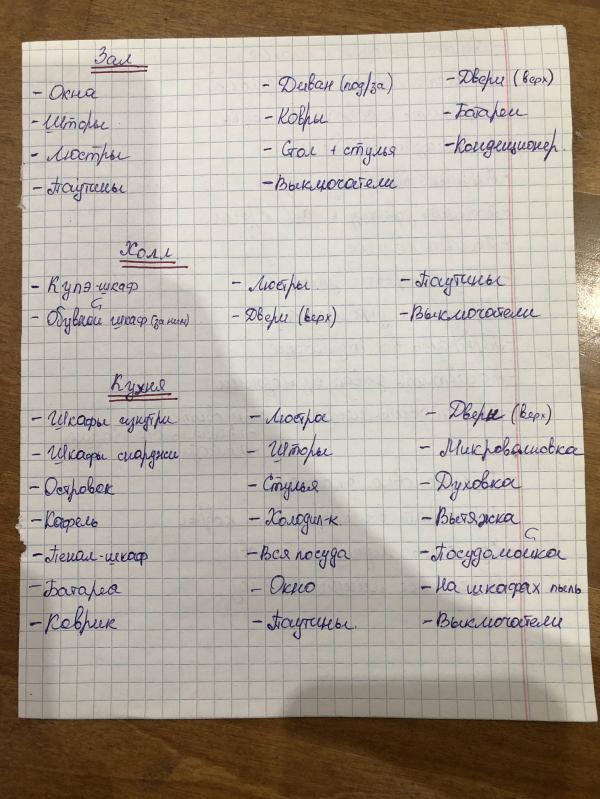 Зал
- Окна - Диван (под/за) - Двери (верх)
- Шторы - Ковры - Батареи
- Люстры - Стол + стулья - Кондиционер.
- Паутины - Выключатели
Холл
- Купэ-шкаф - Люстры - Паутины
- Обувной шкаф (за ним) - Двери (верх) - Выключатели
Кухня
- Шкафы изнутри - Люстра - Двери (верх)
- Шкафы снаружи - Шторы - Микроволновка
- Островок - Стулья - Духовка
- Кафель - Холодил-к. - Вытяжка
- Пенал-шкаф - Вся посуда - Посудомойка
- Батарея - Окно - На шкафах пыль
- Коврик - Паутины. - Выключатели